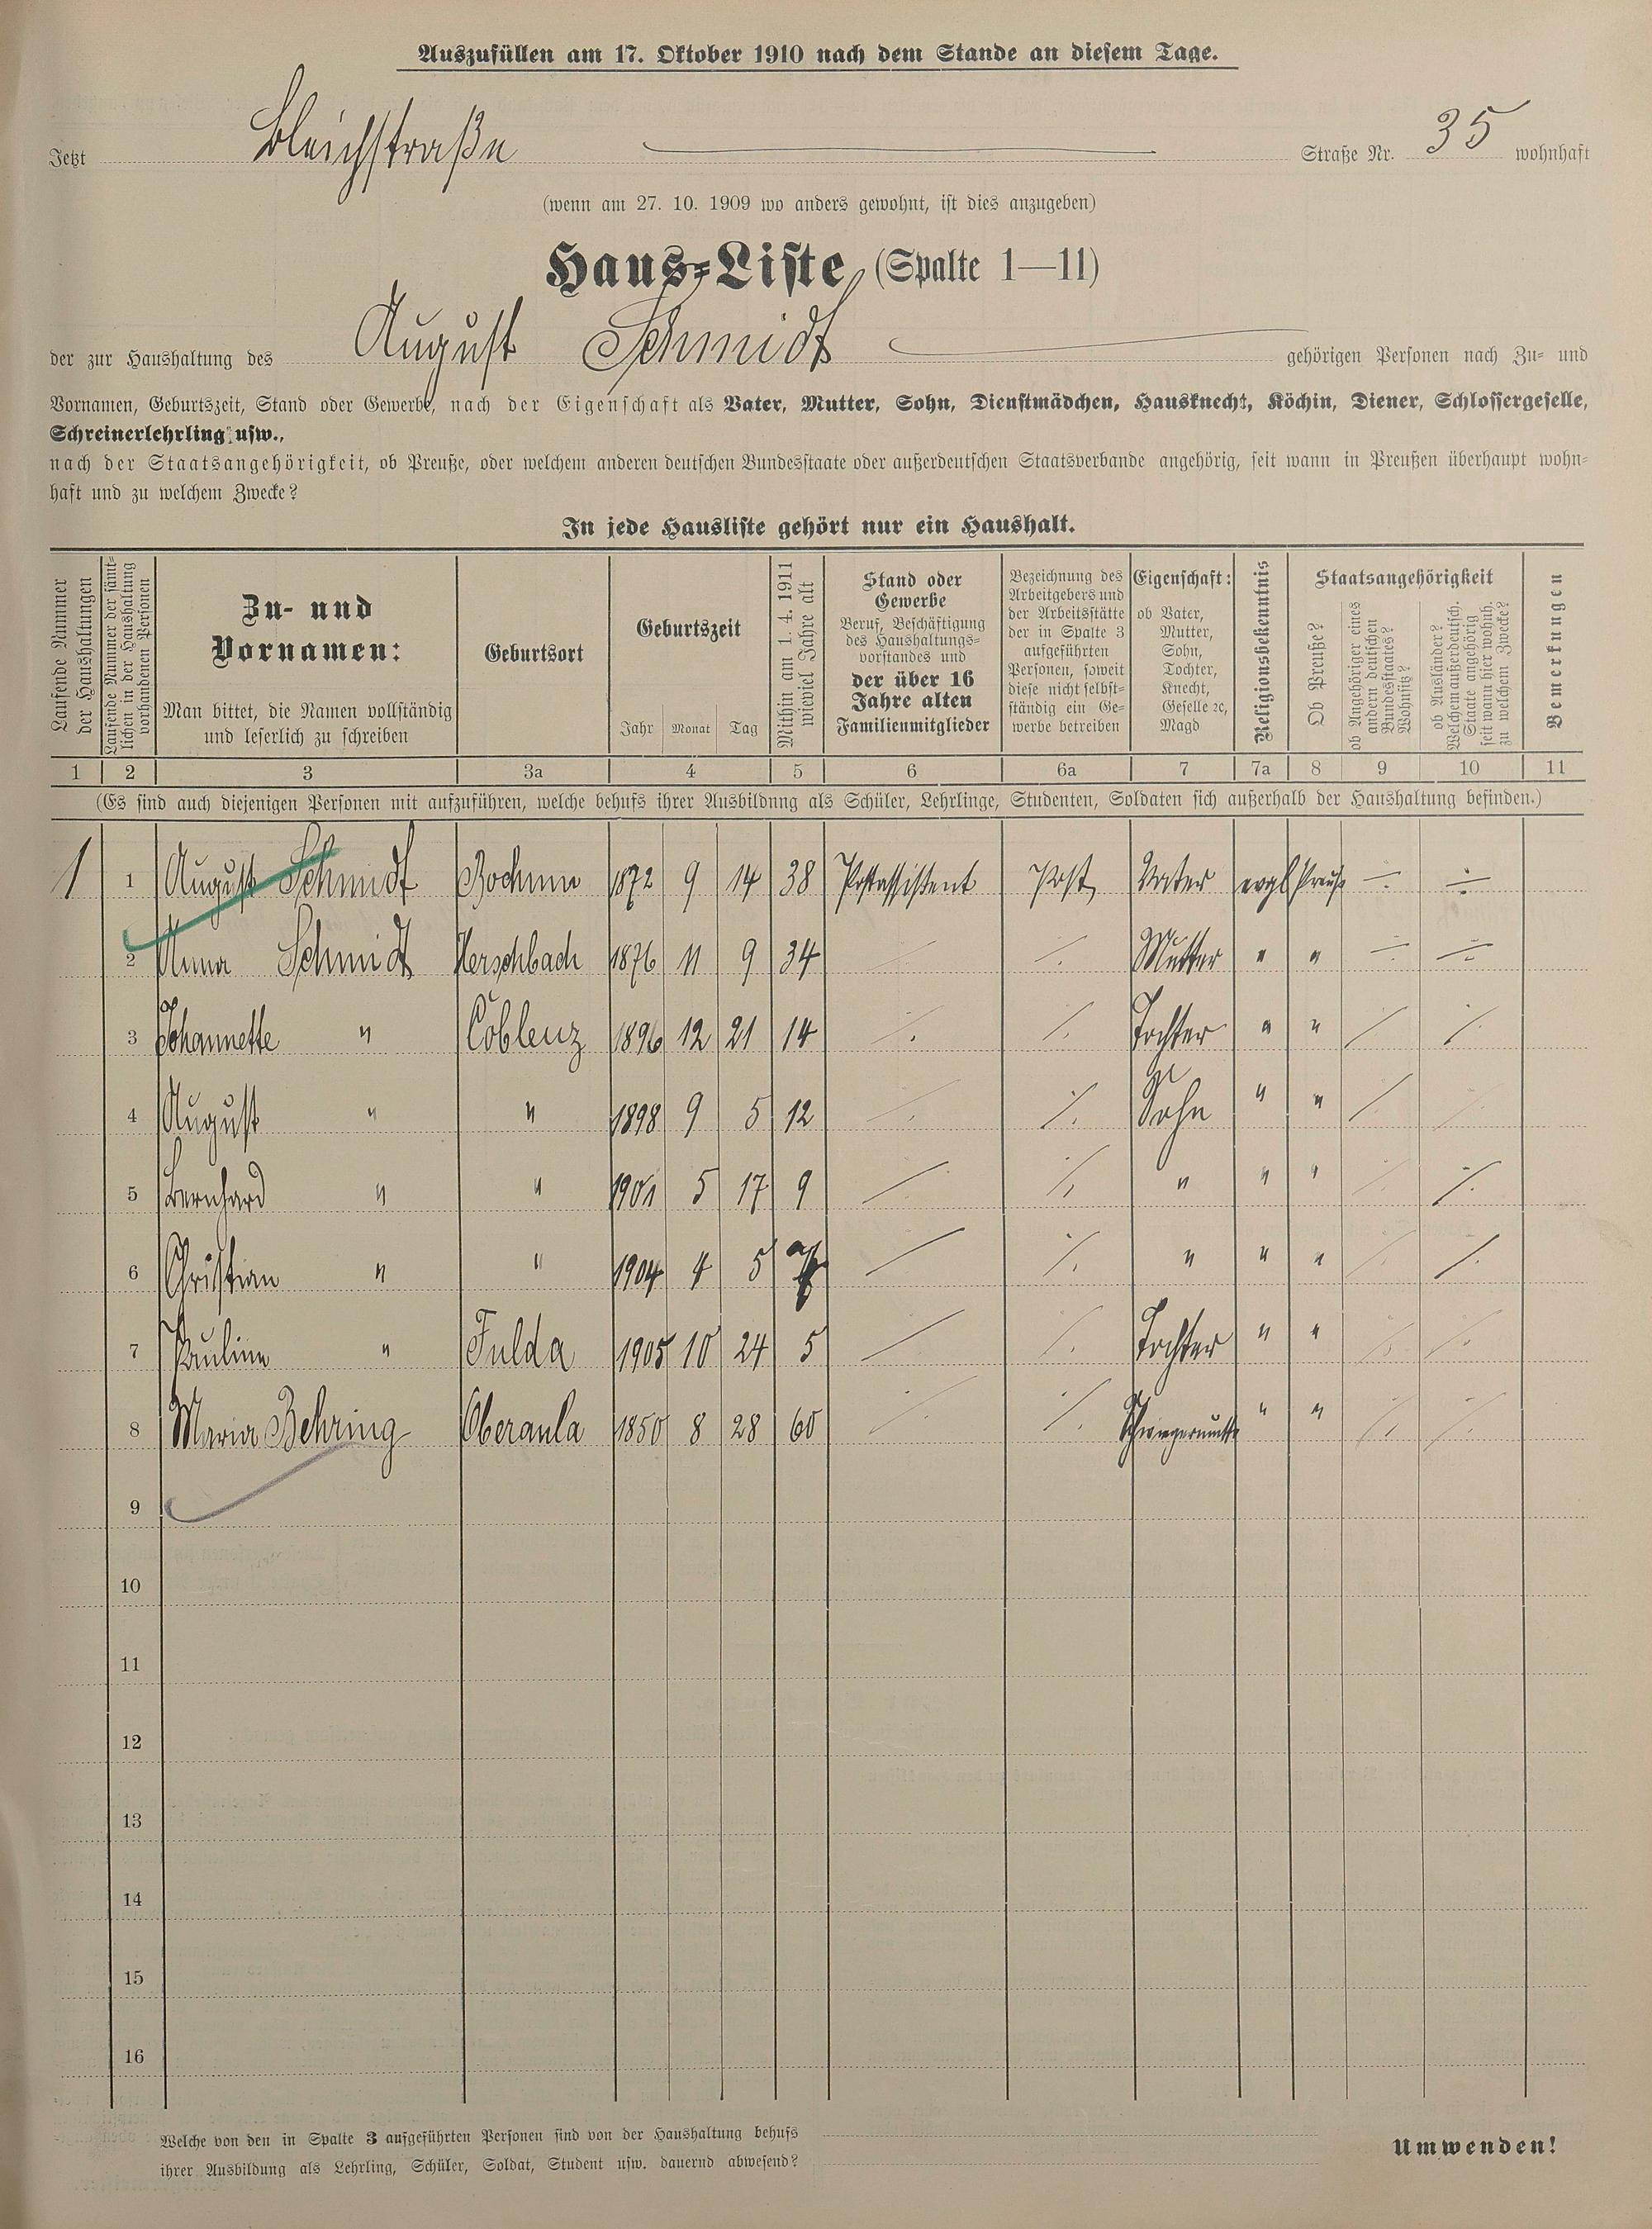 Auszufüllen am 17. Oktober 1910 nach dem Stande an diesem Tage.
Jetzt Bleichstraße Straße Nr. 35 wohnhaft
(wenn am 27. 10. 1909 wo anders gewohnt, ist dies anzugeben)
Haus-Liste (Spalte 1—11)
der zur Haushaltung des August Schmidt gehörigen Personen nach Zu- und
Vornamen, Geburtszeit, Stand oder Gewerbe, nach der Eigenschaft als Vater, Mutter, Sohn, Dienstmädchen, Hausknecht, Köchin, Diener, Schlossergeselle,
Schreinerlehrling usw.,
nach der Staatsangehörigkeit, ob Preuße, oder welchem anderen deutschen Bundesstaate oder außerdeutschen Staatsverbande angehörig, seit wann in Preußen überhaupt wohn-
haft und zu welchem Zwecke?
In jede Hausliste gehört nur ein Haushalt.
Laufende Nummer
der Haushaltungen
Laufende Nummer der sämt-
lichen in der Haushaltung
vorhandenen Personen
Zu- und
Vornamen:
Man bittet, die Namen vollständig
und leserlich zu schreiben
Geburtsort
Geburtszeit
Jahr Monat Tag
Mithin am 1. 4. 1911
wieviel Jahre alt
Stand oder
Gewerbe
Beruf, Beschäftigung
des Haushaltungs-
vorstandes und
der über 16
Jahre alten
Familienmitglieder
Bezeichnung des
Arbeitgebers und
der Arbeitsstätte
der in Spalte 3
aufgeführten
Personen, soweit
diese nicht selbst-
ständig ein Ge-
werbe betreiben
Eigenschaft:
ob Vater,
Mutter,
Sohn,
Tochter,
Knecht,
Geselle ꝛc,
Magd
Religionsbekenntnis
Staatsangehörigkeit
Ob Preuße?
ob Angehöriger eines
andern deutschen
Bundesstaates?
Wohnsitz?
ob Ausländer?
Welchem außerdeutsch.
Staate angehörig
seit wann hier wohnh.
zu welchem Zwecke?
Bemerkungen
1 2 3 3a 4 5 6 6a 7 7a 8 9 10 11
(Es sind auch diejenigen Personen mit aufzuführen, welche behufs ihrer Ausbildung als Schüler, Lehrlinge, Studenten, Soldaten sich außerhalb der Haushaltung befinden.)
1 1 August Schmidt Bochum 1872 9 14 38 Postassistent Post Vater evgl Preuße ÷ ÷
2 Anna Schmidt Herschbach 1876 11 9 34 ·/. ·/. Mutter " " ÷ ÷
3 Johannette " Coblenz 1896 12 21 14 ·/. ·/. Tochter " " / ·/.
4 August " " 1898 9 5 12 ·/. ·/. Sohn " " / ·/.
5 Bernhard " " 1901 5 17 9 / ·/. " " " ·/. ·/.
6 Christian " " 1904 4 5 / ·/. " " " ·/. ·/.
7 Pauline " Fulda 1905 10 24 5 / ·/. Tochter " " ·/. ·/.
8 Maria Behring Oberaula 1850 8 28 60 ·/. ·/. Schwiegermutter " " ·/. ·/.
9
10
11
12
13
14
15
16
Welche von den in Spalte 3 aufgeführten Personen sind von der Haushaltung behufs
ihrer Ausbildung als Lehrling, Schüler, Soldat, Student usw. dauernd abwesend?
Umwenden!